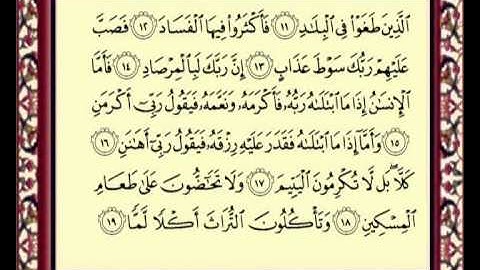 الَّذِينَ طَغَوْا۟ فِى الْبِلَـٰدِ ۝١١ فَأَكْثَرُوا۟ فِيهَا الْفَسَادَ ۝١٢ فَصَبَّ
عَلَيْهِمْ رَبُّكَ سَوْطَ عَذَابٍ ۝١٣ إِنَّ رَبَّكَ لَبِالْمِرْصَادِ ۝١٤ فَأَمَّا
الْإِنسَـٰنُ إِذَا مَا ابْتَلَىٰهُ رَبُّهُۥ فَأَكْرَمَهُۥ وَنَعَّمَهُۥ فَيَقُولُ رَبِّىٓ أَكْرَمَنِ
۝١٥ وَأَمَّآ إِذَا مَا ابْتَلَىٰهُ فَقَدَرَ عَلَيْهِ رِزْقَهُۥ فَيَقُولُ رَبِّىٓ أَهَـٰنَنِ ۝١٦
كَلَّا ۖ بَل لَّا تُكْرِمُونَ الْيَتِيمَ ۝١٧ وَلَا تَحَـٰٓضُّونَ عَلَىٰ طَعَامِ
الْمِسْكِينِ ۝١٨ وَتَأْكُلُونَ التُّرَاثَ أَكْلًا لَّمًّا ۝١٩